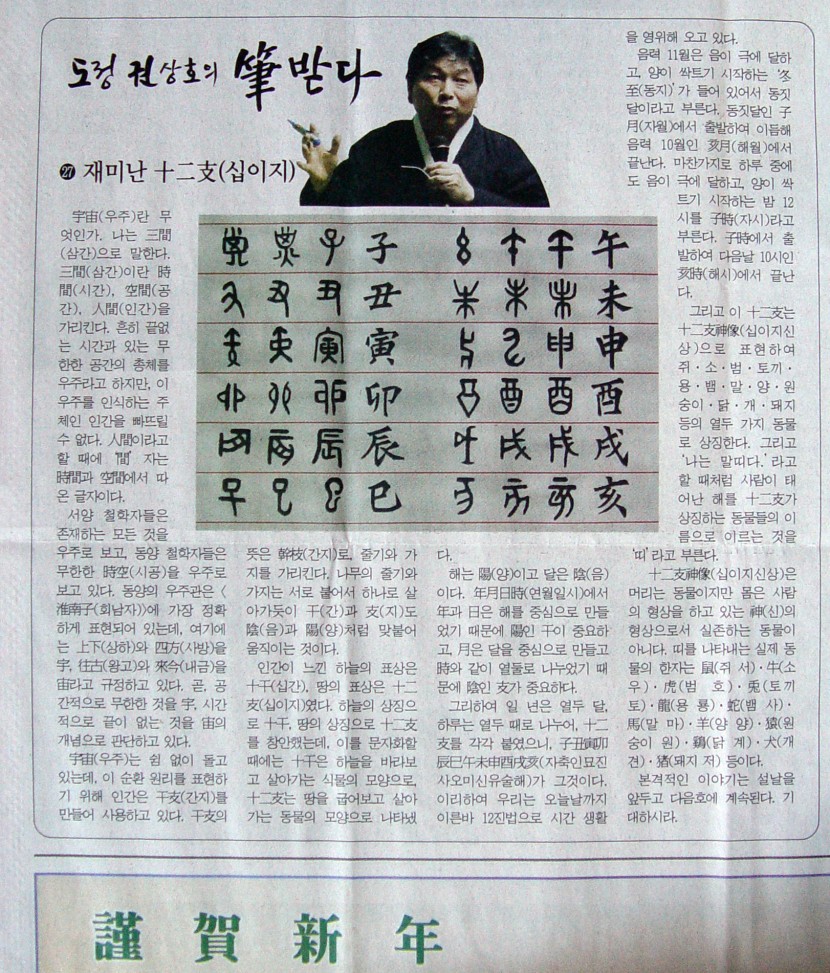 도정 권상호의 筆 받다
27 재미난 十二支(십이지)
宇宙(우주)란 무
엇인가. 나는 三間
(삼간)으로 말한다.
三間(삼간)이란 時
間(시간), 空間(공
간), 人間(인간)을
가리킨다. 흔히 끝없
는 시간과 있는 무
한한 공간의 총체를
우주라고 하지만, 이
우주를 인식하는 주
체인 인간을 빠뜨릴
수 없다. 人間이라고
할 때에 '間' 자는
時間과 空間에서 따
온 글자이다.
서양 철학자들은
존재하는 모든 것을
우주로 보고, 동양 철학자들은
무한한 時空(시공)을 우주로
보고 있다. 동양의 우주관은 <
淮南子(회남자)>에 가장 정확
하게 표현되어 있는데, 여기에
는 上下(상하)와 四方(사방)을
宇, 往古(왕고)와 來今(내금)을
宙라고 규정하고 있다. 곧, 공
간적으로 무한한 것을 宇, 시간
적으로 끝이 없는 것을 宙의
개념으로 판단하고 있다.
宇宙(우주)는 쉼 없이 돌고
있는데, 이 순환 원리를 표현하
기 위해 인간은 干支(간지)를
만들어 사용하고 있다. 干支의
子 午
丑 未
寅 申
卯 酉
辰 戌
巳 亥
뜻은 幹枝(간지)로, 줄기와 가
지를 가리킨다. 나무의 줄기와
가지는 서로 붙어서 하나로 살
아가듯이 干(간)과 支(지)도
陰(음)과 陽(양)처럼 맞붙어
움직이는 것이다.
인간이 느낀 하늘의 표상은
十干(십간), 땅의 표상은 十二
支(십이지)였다. 하늘의 상징으
로 十干, 땅의 상징으로 十二支
를 창안했는데, 이를 문자화할
때에는 十干은 하늘을 바라보
고 살아가는 식물의 모양으로,
十二支는 땅을 굽어보고 살아
가는 동물의 모양으로 나타냈
다.
해는 陽(양)이고 달은 陰(음)
이다. 年月日時(연월일시)에서
年과 日은 해를 중심으로 만들
었기 때문에 陽인 干이 중요하
고, 月은 달을 중심으로 만들고
時와 같이 열둘로 나누었기 때
문에 陰인 支가 중요하다.
그리하여 일 년은 열두 달,
하루는 열두 때로 나누어, 十二
支를 각각 붙였으니, 子丑寅卯
辰巳午未申酉戌亥(자축인묘진
사오미신유술해)가 그것이다.
이리하여 우리는 오늘날까지
이른바 12진법으로 시간 생활
을 영위해 오고 있다.
음력 11월은 음이 극에 달하
고, 양이 싹트기 시작하는 '冬
至(동지)'가 들어 있어서 동짓
달이라고 부른다. 동짓달인 子
月(자월)에서 출발하여 이듬해
음력 10월인 亥月(해월)에서
끝난다. 마찬가지로 하루 중에
도 음이 극에 달하고, 양이 싹
트기 시작하는 밤 12
시를 子時(자시)라고
부른다. 子時에서 출
발하여 다음날 10시인
亥時(해시)에서 끝난
다.
그리고 이 十二支는
十二支神像(십이지신
상)으로 표현하여
쥐·소·범·토끼·
용·뱀·말·양·원
숭이·닭·개·돼지
등의 열두 가지 동물
로 상징한다. 그리고
'나는 말띠다.' 라고
할 때처럼 사람이 태
어난 해를 十二支가
상징하는 동물들의 이
름으로 이르는 것을
'띠' 라고 부른다.
十二支神像(십이지신상)은
머리는 동물이지만 몸은 사람
의 형상을 하고 있는 神(신)의
형상으로서 실존하는 동물이
아니다. 띠를 나타내는 실제 동
물의 한자는 鼠(쥐 서)·牛(소
우)·虎(범 호)·兎(토끼
토)·龍(용 룡)·蛇(뱀 사)·
馬(말 마)·羊(양 양)·猿(원
숭이 원)·鷄(닭 계)·犬(개
견)·猪(돼지 저) 등이다.
본격적인 이야기는 설날을
앞두고 다음호에 계속된다. 기
대하시라.
謹賀新年